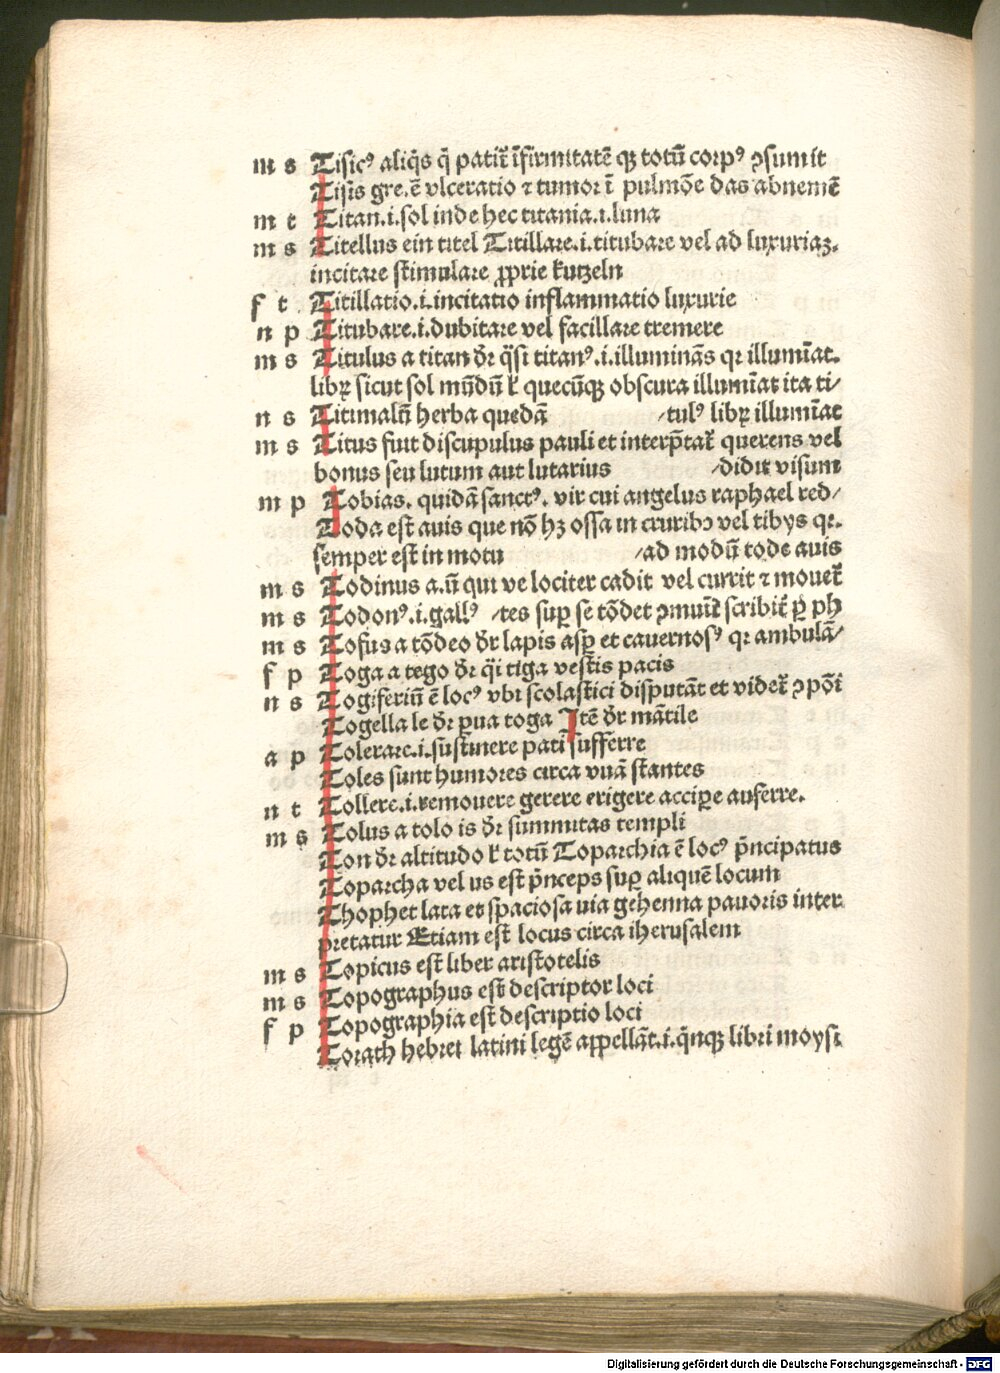 m s Tisicꝰ aliq̄s q̄ patit̄ īfirmitatē qꝫ totū corpꝰ ꝯsumit
Tisis gre. ē vlceratio ⁊ tumor ī pulmōe das abnemē
m t Titan .i. sol inde hec titania .i. luna
m s Titellus ein titel Titillare .i. titubare vel ad luxuriaꝫ.
incitare stimulare ꝓprie kutzeln
f t Titillatio .i. incitatio inflammatio luxurie
n p Titubare .i. dubitare vel facillare tremere
m s Titulus a titan dr̄ q̄si titanꝰ .i. illuminās qr illumīat.
libꝝ sicut sol mūdū ł quecūqꝫ obscura illumīat ita ti/
n s Titimalū herba quedā /tulꝰ libꝝ illumīat
m s Titus fuit discupulus pauli et interp̄tat̄ querens vel
bonus seu lutum aut lutarius /didit visum
m p Tobias. quidā sanctꝰ. vir cui angelus raphael red/
Toda est auis que nō hꝫ ossa in cruribꝰ vel tibys qr.
semper est in motu /ad modū tode auis
m s Todinus a. ū qui ve lociter cadit vel currit ⁊ mouet̄
m s Todonꝰ .i. gallꝰ /tes suꝑ se tōdet ꝯmuīt̄ scribit̄ ꝑ ph
m s Tofus a tōdeo dr̄ lapis asꝑ et cauernosꝰ qr ambulā/
f p Toga a tego dr̄ q̄i tiga vestis pacis
n s Togiferiū ē locꝰ vbi scolastici disputāt et videt̄ ꝯpōi
Togella le dr̄ ꝑua toga Itē dr̄ mātile
a p Tolerare .i. sustinere pati sufferre
Toles sunt humores circa vuā stantes
n t Tollere .i. remouere gerere erigere acciꝑe auferre.
m s Tolus a tolo is dr̄ summitas templi
Ton dr̄ altitudo ł totū Toparchia ē locꝰ p̄ncipatus
Toparcha vel us est p̄nceps suꝑ aliquē locum
Thophet lata et spaciosa uia gehenna pauoris inter
pretatur Etiam est locus circa iherusalem
m s Topicus est liber aristotelis
m s Topographus est descriptor loci
f p Topographia est descriptio loci
Torath hebrei latini legē appellāt .i. q̄nqꝫ libri moysi
Digitalisierung gefördert durch die Deutsche Forschungsgemeinschaft - DFG